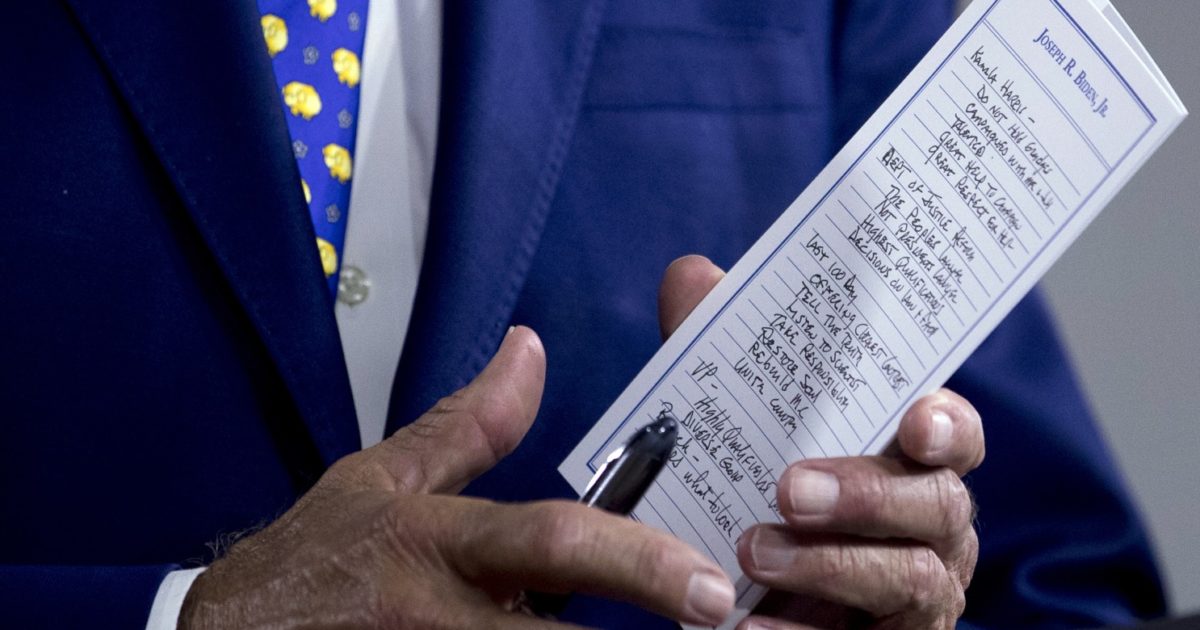 JOSEPH R. BIDEN, JR.
KAMALA HARRIS -
DO NOT HOLD GRUDGES
CAMPAIGNED WITH ME & JILL
TALENTED
GREAT HELP TO CAMPAIGN
GREAT RESPECT FOR HER
DEPT OF JUSTICE
THE PEOPLES LAWYER
NOT PRESIDENTS LAWYER
HIGHEST QUALIFICATIONS
DECISIONS ON LAW & FACT
LAST 100 DAY
OFFERING CLEAREST CONTRAST
TELL THE TRUTH
LISTEN TO SCIENTISTS
TAKE RESPONSIBILITY
RESTORE SOUL
REBUILD M.C
UNITE COUNTRY
VP -
Highly Qualified
DIVERSE GROUP
what to look